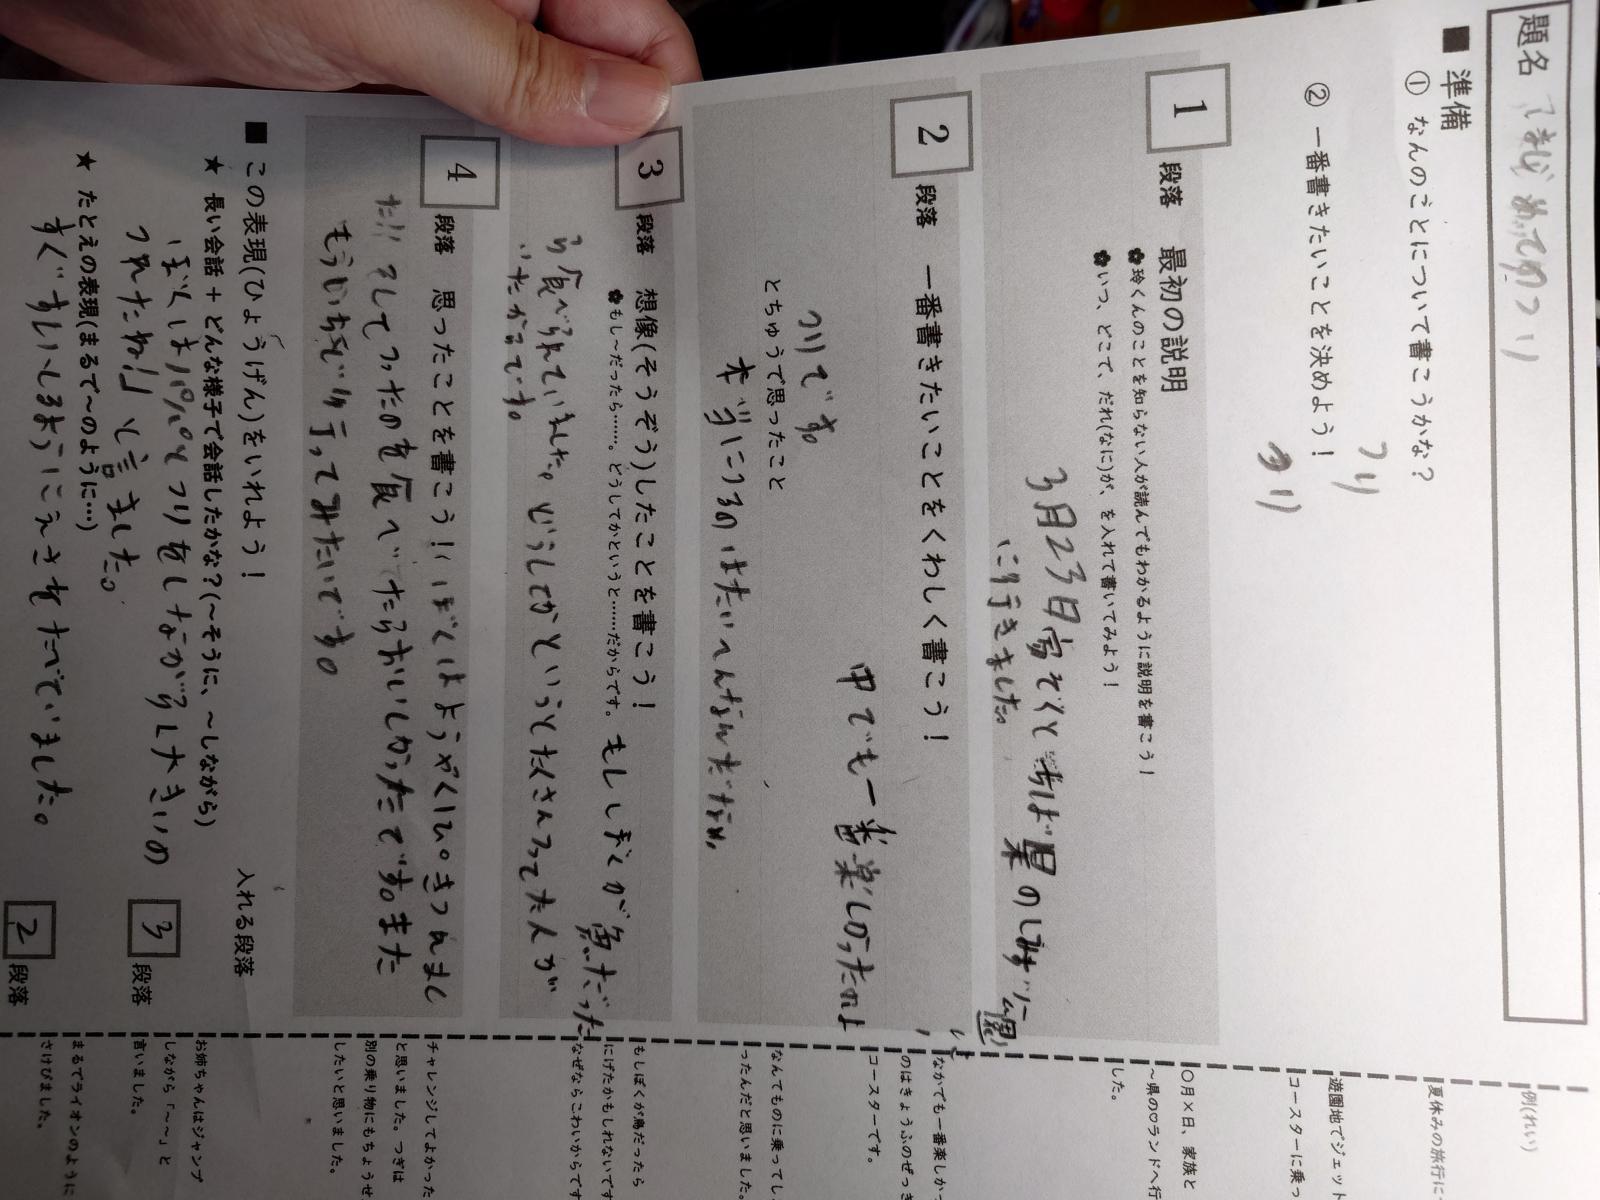 題名 はじめてのつり
■ 準備
① なんのことについて書こうかな?
つり
② 一番書きたいことを決めよう!
つり
1 段落 最初の説明
✿玲くんのことを知らない人が読んでもわかるように説明を書こう!
✿いつ、どこで、だれ(なに)が、を入れて書いてみよう!
3月23日家ぞくと
に行きました。
2 段落 一番書きたいことをくわしく書こう!
中でも一番楽しかったのは、
つりです。
とちゅうで思ったこと
本当につるのはたいへんなんだなぁ。
3 段落 想像(そうぞう)したことを書こう!
✿もし~だったら……。どうしてかというと……だからです。
もしぼくが魚だった
ら食べられていました。どうしてかというとたくさんつってた人が
いたからです。
4 段落 思ったことを書こう!
そしてつったのを食べたらおいしかったです。また
もういちど行ってみたいです。
■ この表現(ひょうげん)をいれよう!
入れる段落
★ 長い会話+どんな様子で会話したかな?(~そうに、~しながら)
ぼくはパパとつりをしながら「大きいの
つれたね!」と言いました。
3 段落
★ たとえの表現(まるで~のように…)
2 段落
例(れい)
夏休みの旅行に
遊園地でジェット
コースターに乗っ
○月×日、家族と
~県の♡ランドへ行
した。
なかでも一番楽しかっ
のはきょうふのぜっき
コースターです。
なんてものに乗ってし
ったんだと思いました。
もしぼくが鳥だったら
にげたかもしれないです
なぜならこわいからです
チャレンジしてよかった
と思いました。つぎは
別の乗り物にもちょうせ
したいと思いました。
お姉ちゃんはジャンプ
しながら「~~」と
言いました。
まるでライオンのように
さけびました。